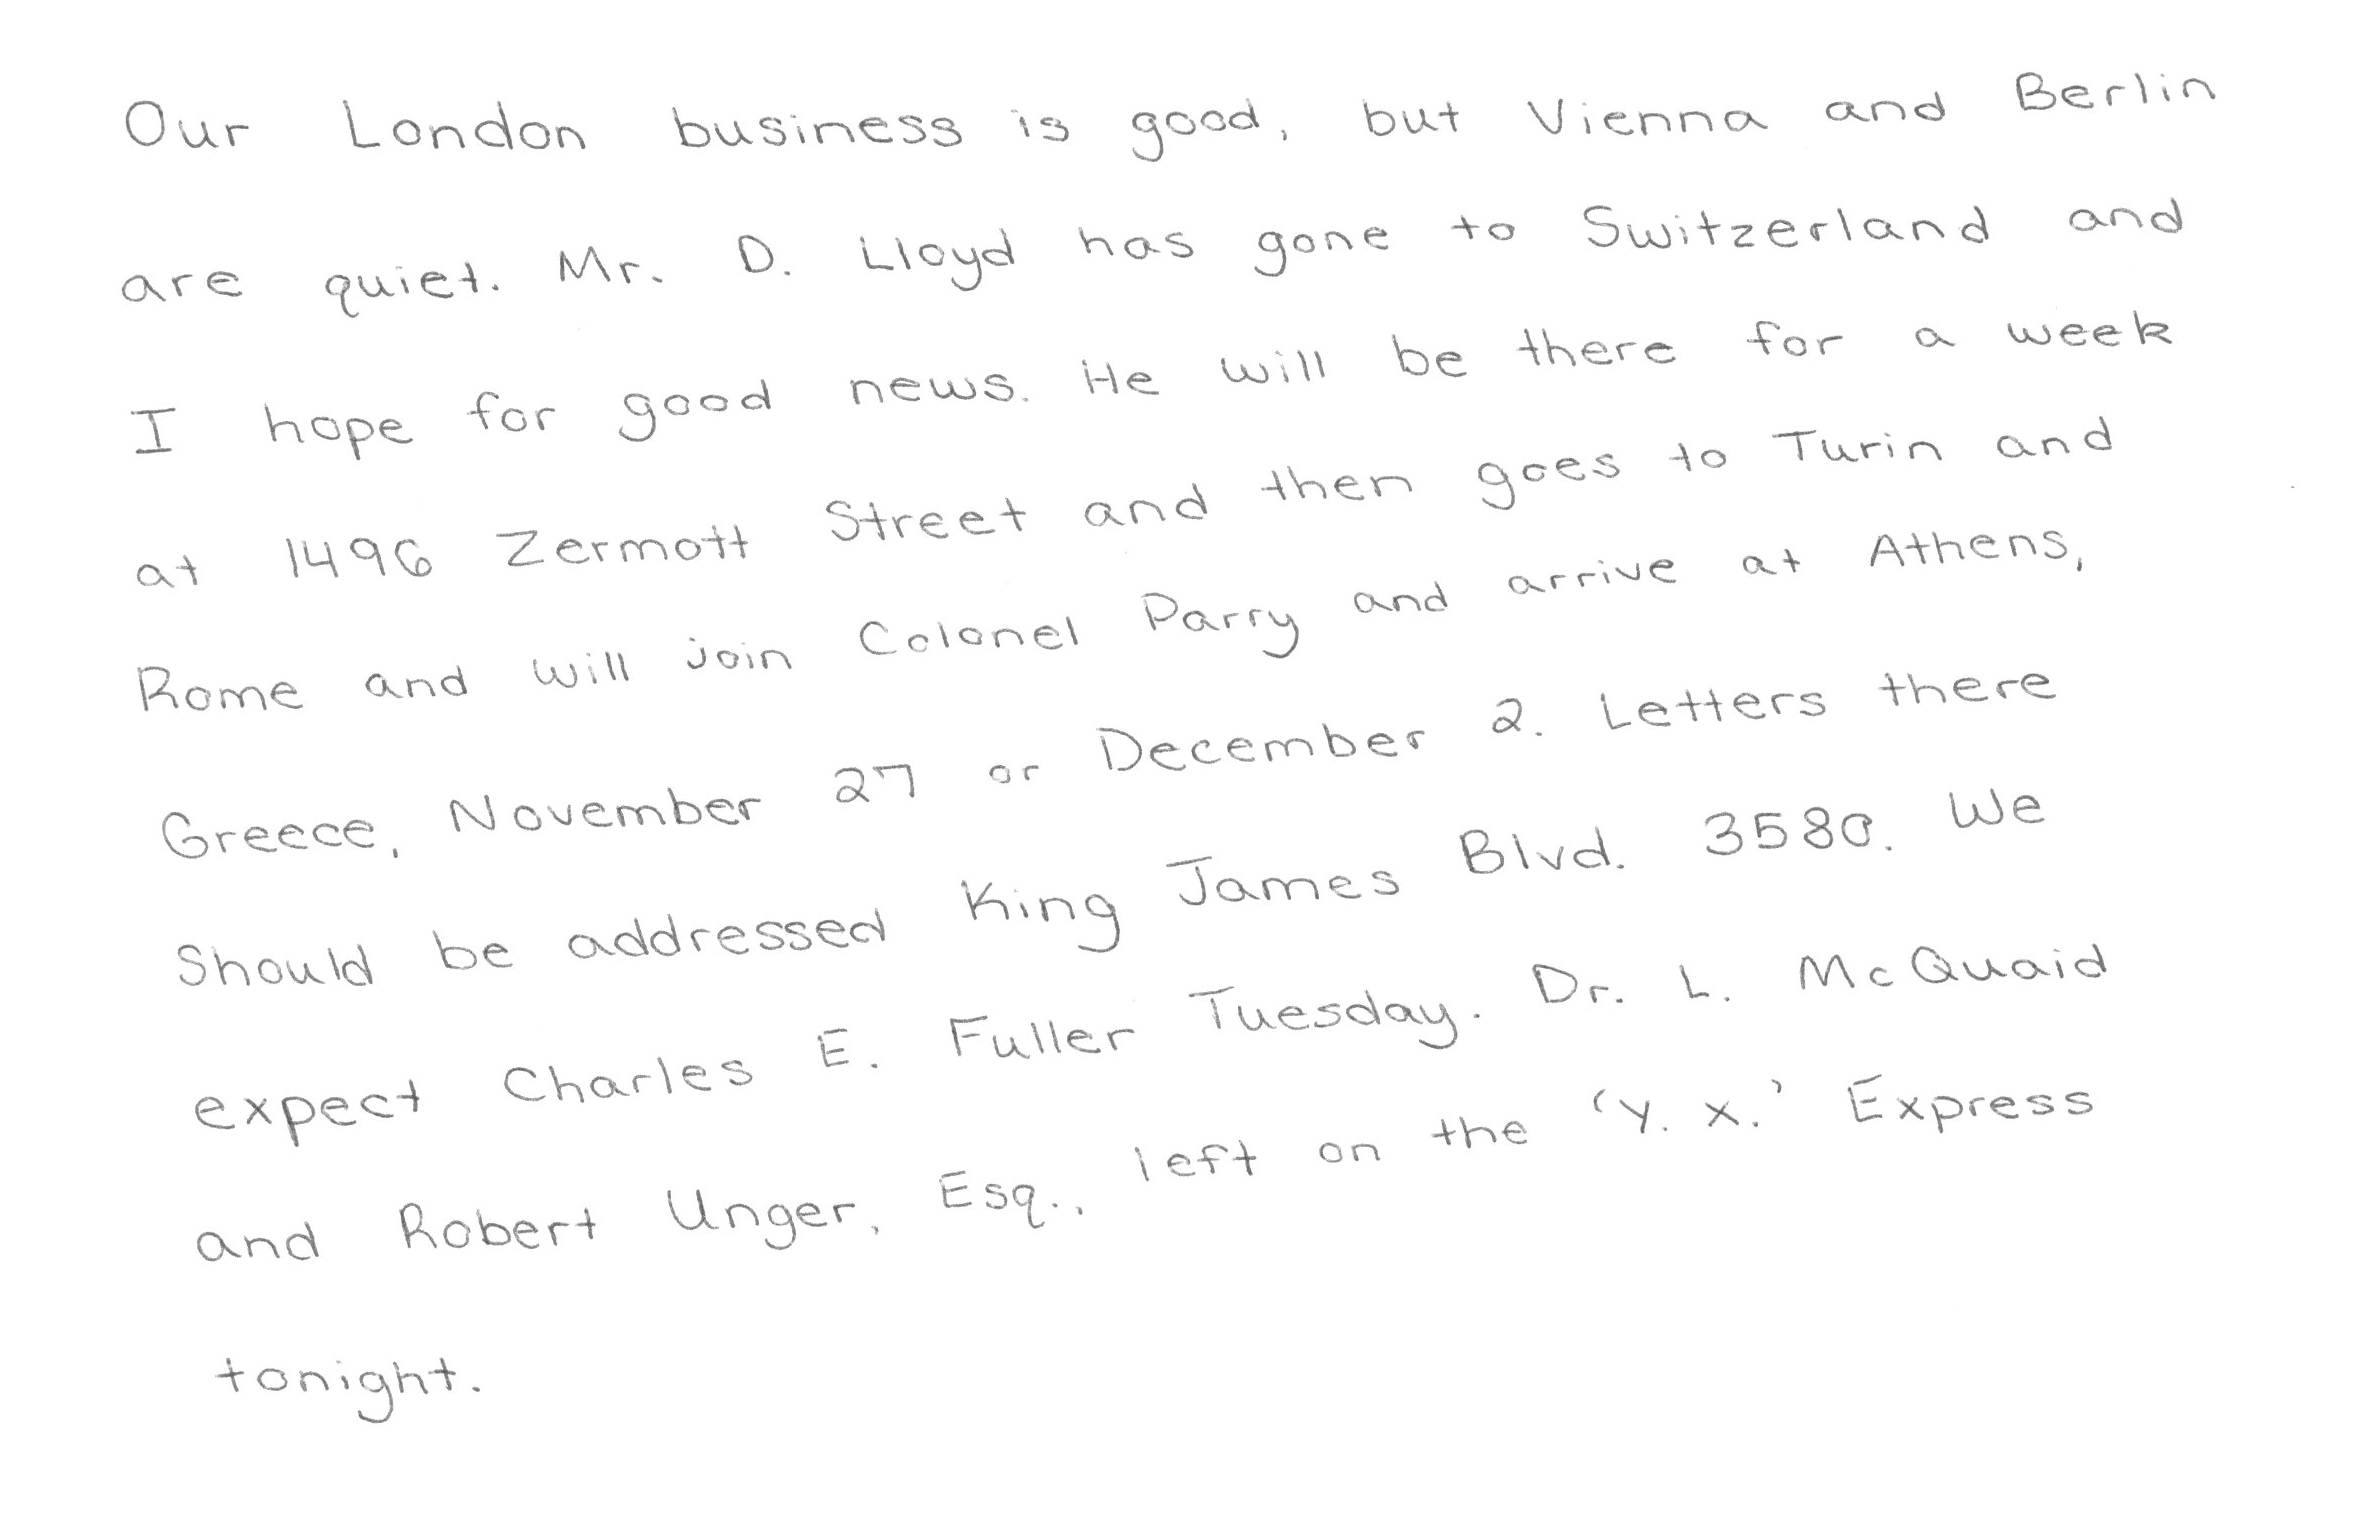 Our London business is good, but Vienna and Berlin
are quiet. Mr. D. Lloyd has gone to Switzerland and
I hope for good news. He will be there for a week
at 1496 Zermott Street and then goes to Turin and
Rome and will join Colonel Parry and arrive at Athens,
Greece, November 27 or December 2. Letters there
Should be addressed King James Blvd. 3580. We
expect Charles E. Fuller Tuesday. Dr. L. McQuaid
and Robert Unger, Esq., left on the 'Y. X.' Express
tonight.